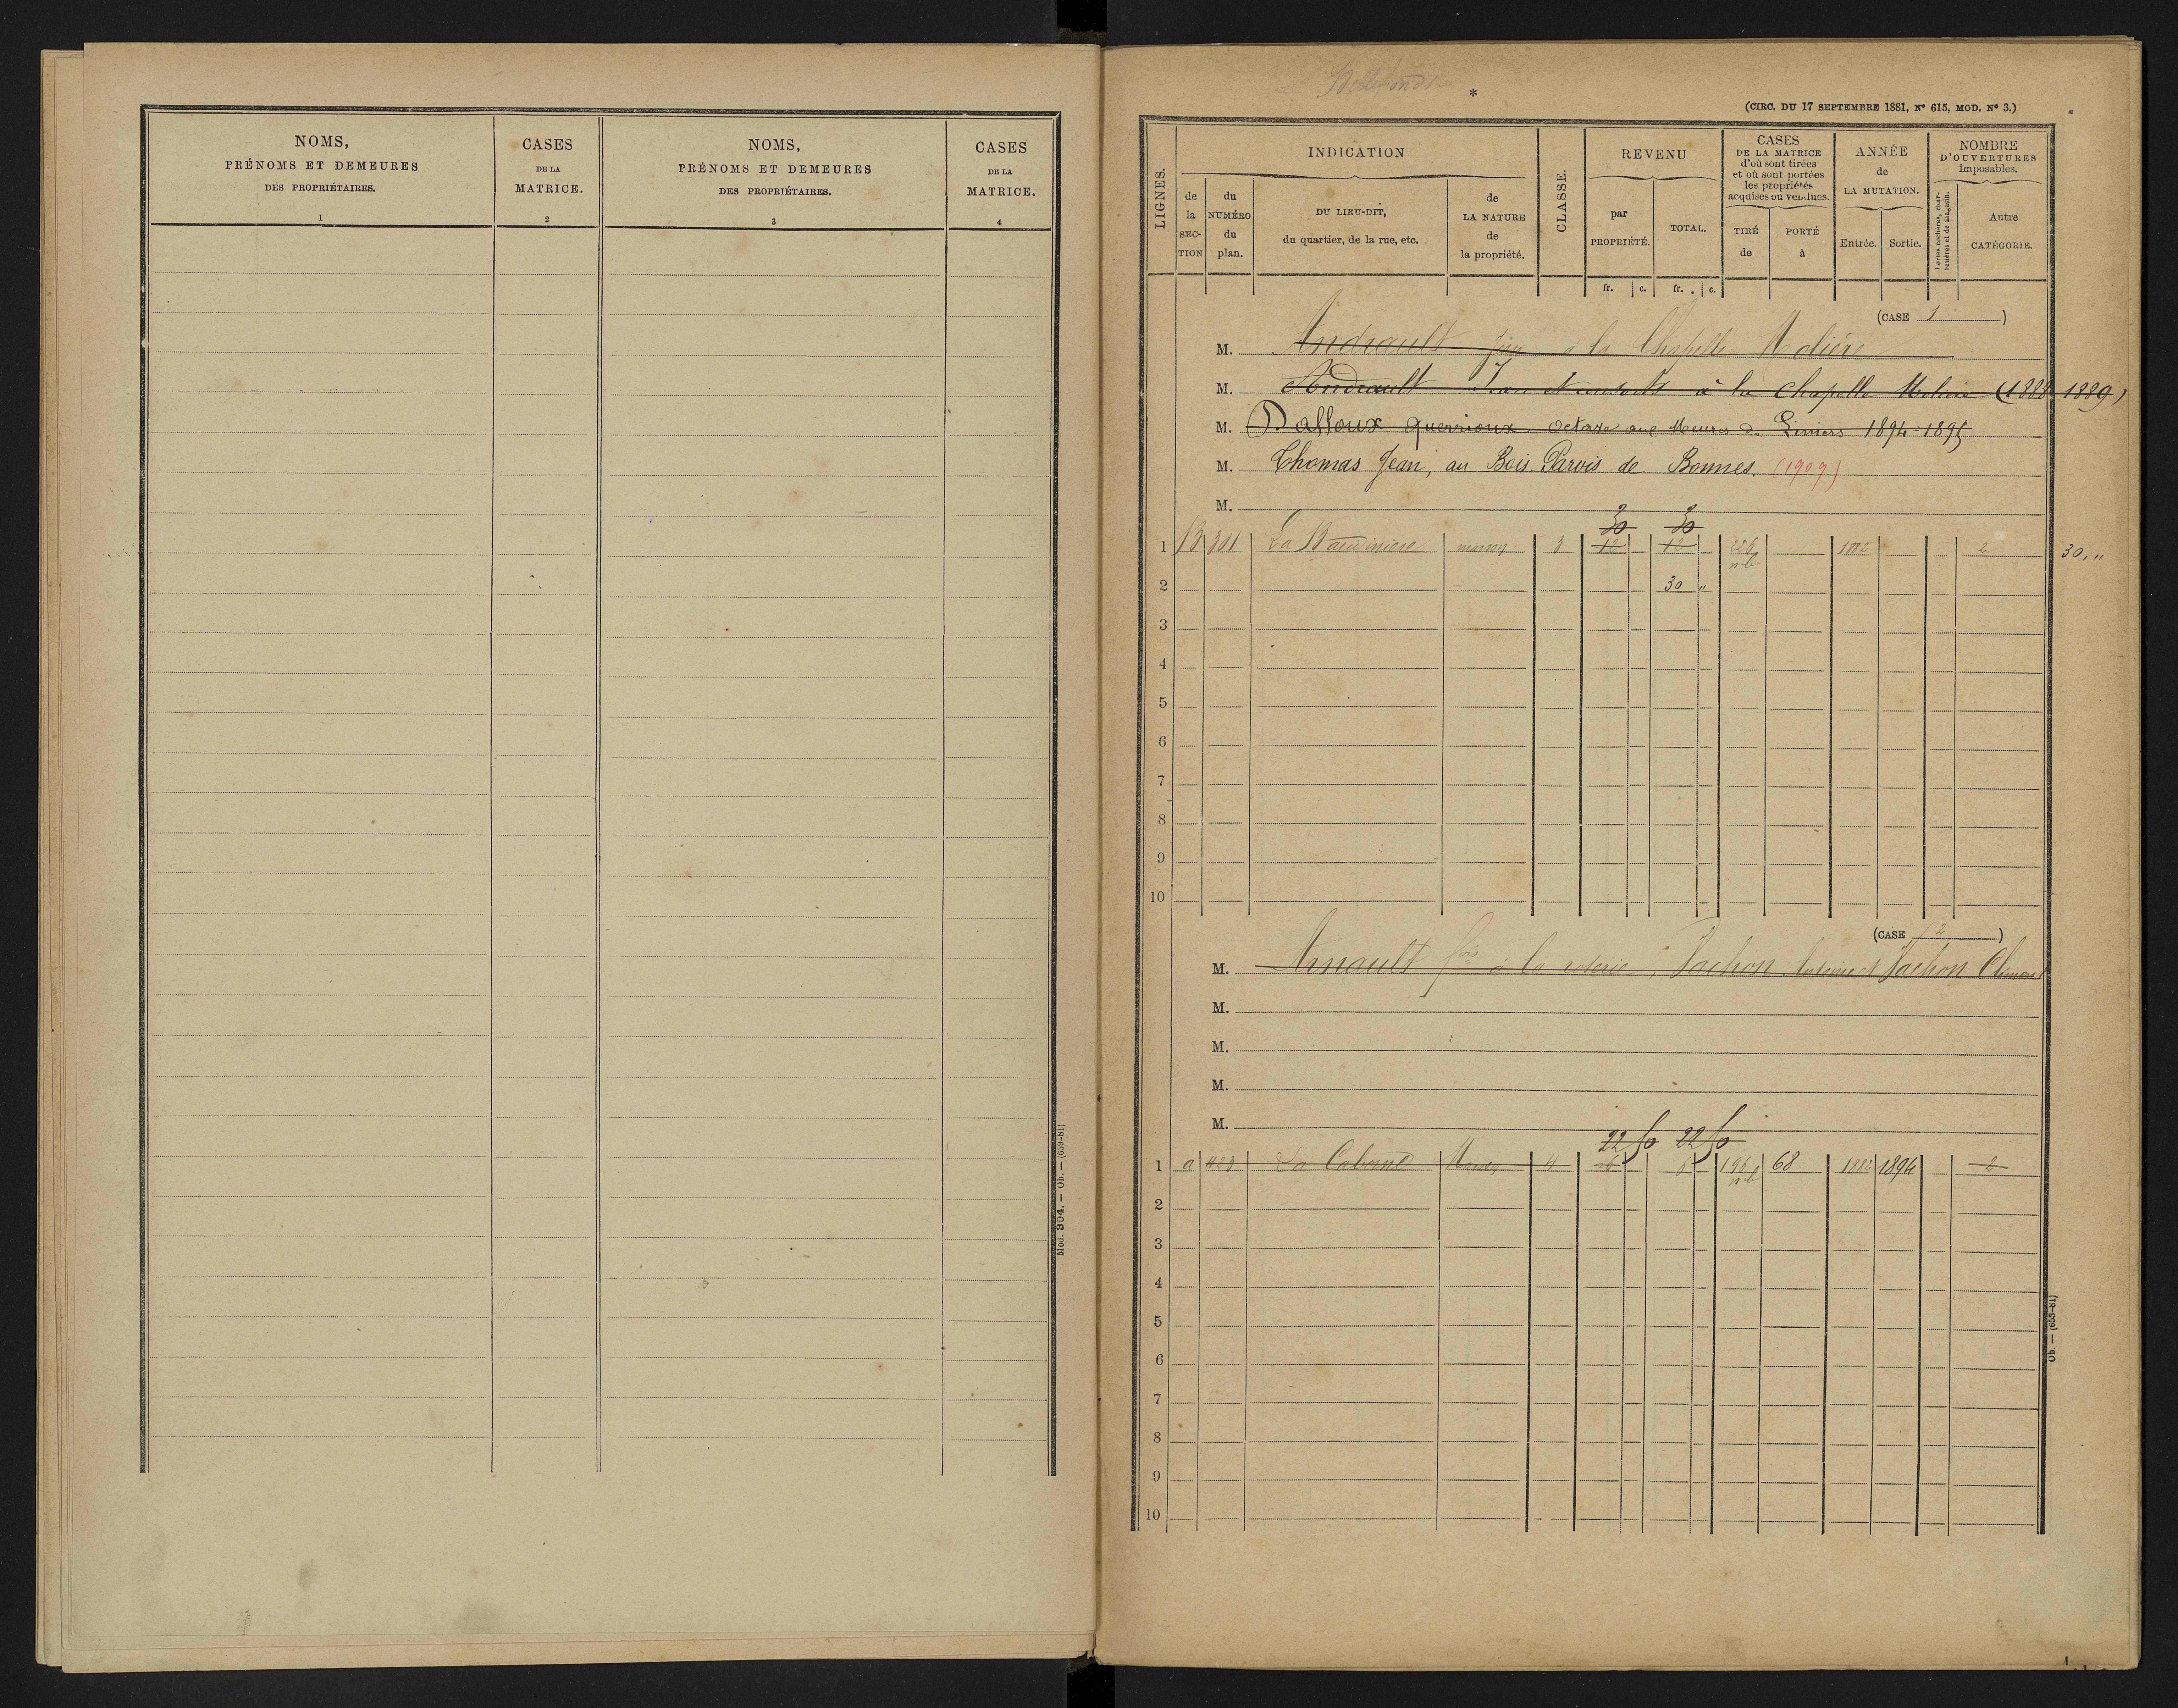 NOMS,
PRÉNOMS ET DEMEURES
DES PROPRIÉTAIRES.
1
CASES
DE LA
MATRICE.
2
NOMS,
PRÉNOMS ET DEMEURES
DES PROPRIÉTAIRES.
3
CASES
DE LA
MATRICE.
4
Mod. 304. — Ob. — (659-81)
*
(CIRC. DU 17 SEPTEMBRE 1881, Nº 615, MOD. Nº 3.)
LIGNES.
INDICATION
de la SECTION
du NUMÉRO du plan.
DU LIEU-DIT,
du quartier, de la rue, etc.
de LA NATURE de la propriété.
CLASSE.
REVENU
par PROPRIÉTÉ.
TOTAL.
CASES
DE LA MATRICE
d'où sont tirées
et où sont portées
les propriétés
acquises ou vendues.
TIRÉ de
PORTÉ à
ANNÉE
de
LA MUTATION.
Entrée.
Sortie.
NOMBRE
D'OUVERTURES
imposables.
Portes cochères, charretières et de magasin.
Autre
CATÉGORIE.
fr. c. fr. c.
(CASE 1)
M. Andrault Jean a la Chapelle Molière
M. Andrault Jean et consorts à la Chapelle Moliere (1888 1889)
M. Dalloux Guerrioux Octave aux Meures de Liniers 1894-1895
M. Thomas Jean, au Bois Parvis de Bonnes. (1909)
M.
30 30
1 B 301 La Baudiniere maison 3 12 12 226 1882 2 30 "
2 30 "
3
4
5
6
7
8
9
10
(CASE 2)
M. Arnault à la roterie, Pachon Antoine et Pachon
M.
M.
M.
M.
22 50 22 50
1 a 428 La Caborne Maison 4 6 6 196 68 1882 1894 2
2
3
4
5
6
7
8
9
10
Ob. — (653-81)